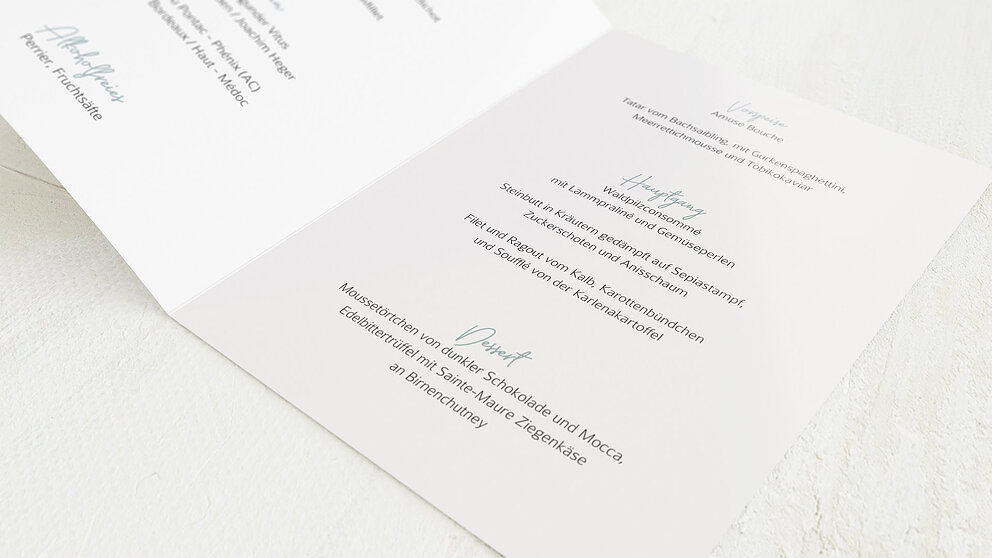 Vitus
/ Joachim Heger
Pontac - Phénix (AC)
Bordeaux / Haut - Médoc
Alkoholfreies
Perrier, Fruchtsäfte
Vorspeise
Amuse Bouche
Tatar vom Bachsaibling, mit Gurkenspaghettini,
Meerrettichmousse und Tobikokaviar
Hauptgang
Waldpilzconsommé
mit Lammpraliné und Gemüseperlen
Steinbutt in Kräutern gedämpft auf Sepiastampf,
Zuckerschoten und Anisschaum
Filet und Ragout vom Kalb, Karottenbündchen
und Soufflé von der Karlenakartoffel
Dessert
Moussetörtchen von dunkler Schokolade und Mocca,
Edelbittertrüffel mit Sainte-Maure Ziegenkäse
an Birnenchutney